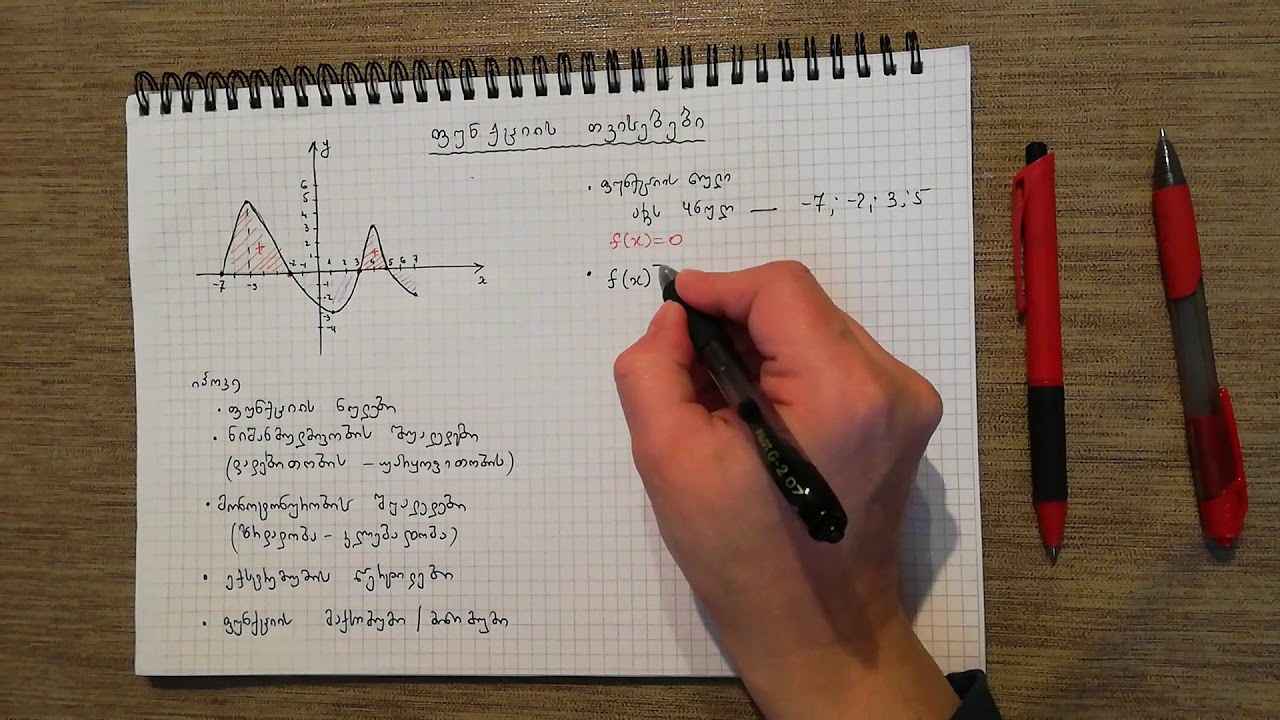 ფუნქციის თვისებები
y
6
5
4
3
2
1
-7 -5 -2 -1 1 2 3 4 5 6 7
x
-2
-3
-4
+ +
• ფუნქციის ნული
აქვს 4 ნული — -7; -2; 3; 5
f(x)=0
• f(x)
იპოვე
• ფუნქციის ნულები
• ნიშანმუდმივობის შუალედები
(დადებითობის - უარყოფითობის)
• მონოტონურობის შუალედები
(ზრდადობა - კლებადობა)
• ექსტრემუმის წერტილები
• ფუნქციის მაქსიმუმი / მინიმუმი
G-2 07